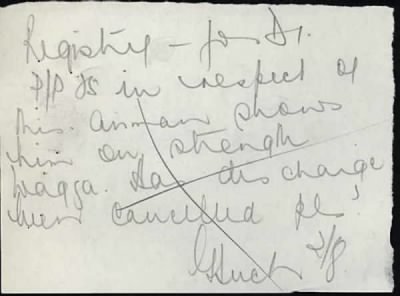 Registry – for
P/P 75 in respect of
this airman shows
him on strength
Wagga. Has discharge
been cancelled pls?
2/8